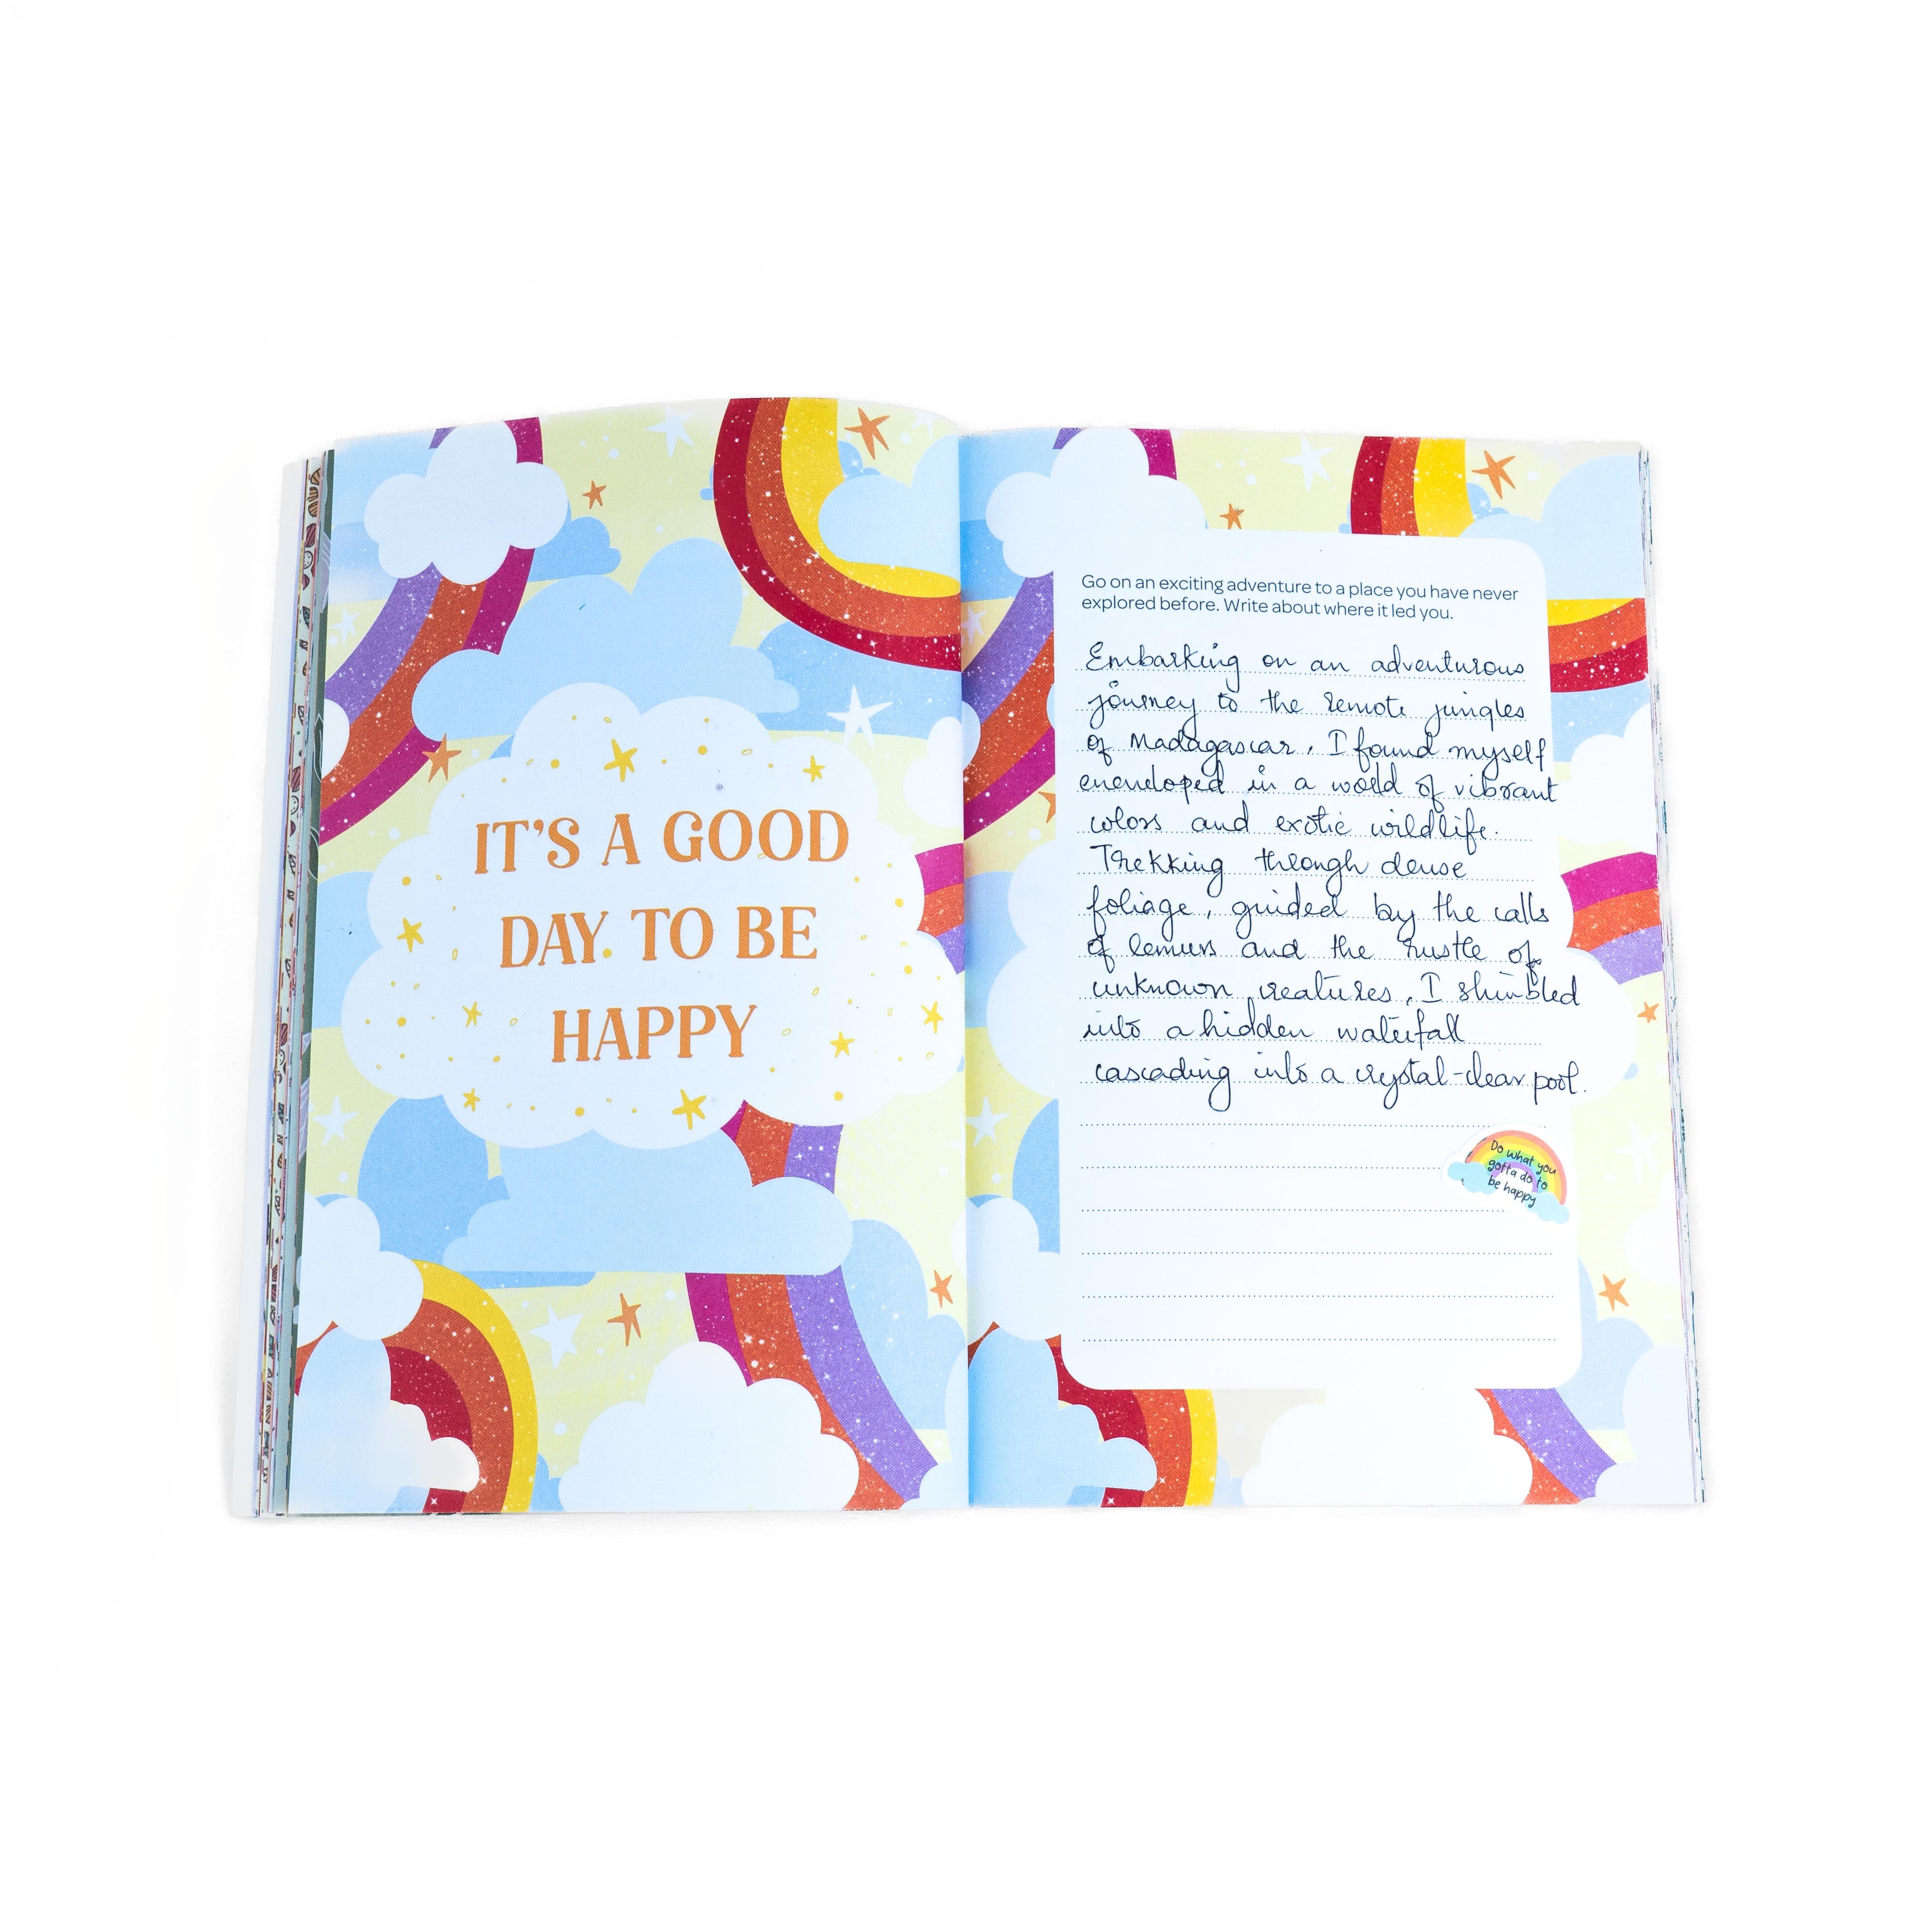 IT'S A GOOD
DAY TO BE
HAPPY
Go on an exciting adventure to a place you have never
explored before. Write about where it led you.
Embarking on an adventurous
journey to the remote jungles
of Madagascar, I found myself
enveloped in a world of vibrant
colors and exotic wildlife.
Trekking through dense
foliage, guided by the calls
of lemurs and the rustle of
unknown creatures, I stumbled
into a hidden waterfall
cascading into a crystal-clear pool.
Do what you
gotta do to
be happy